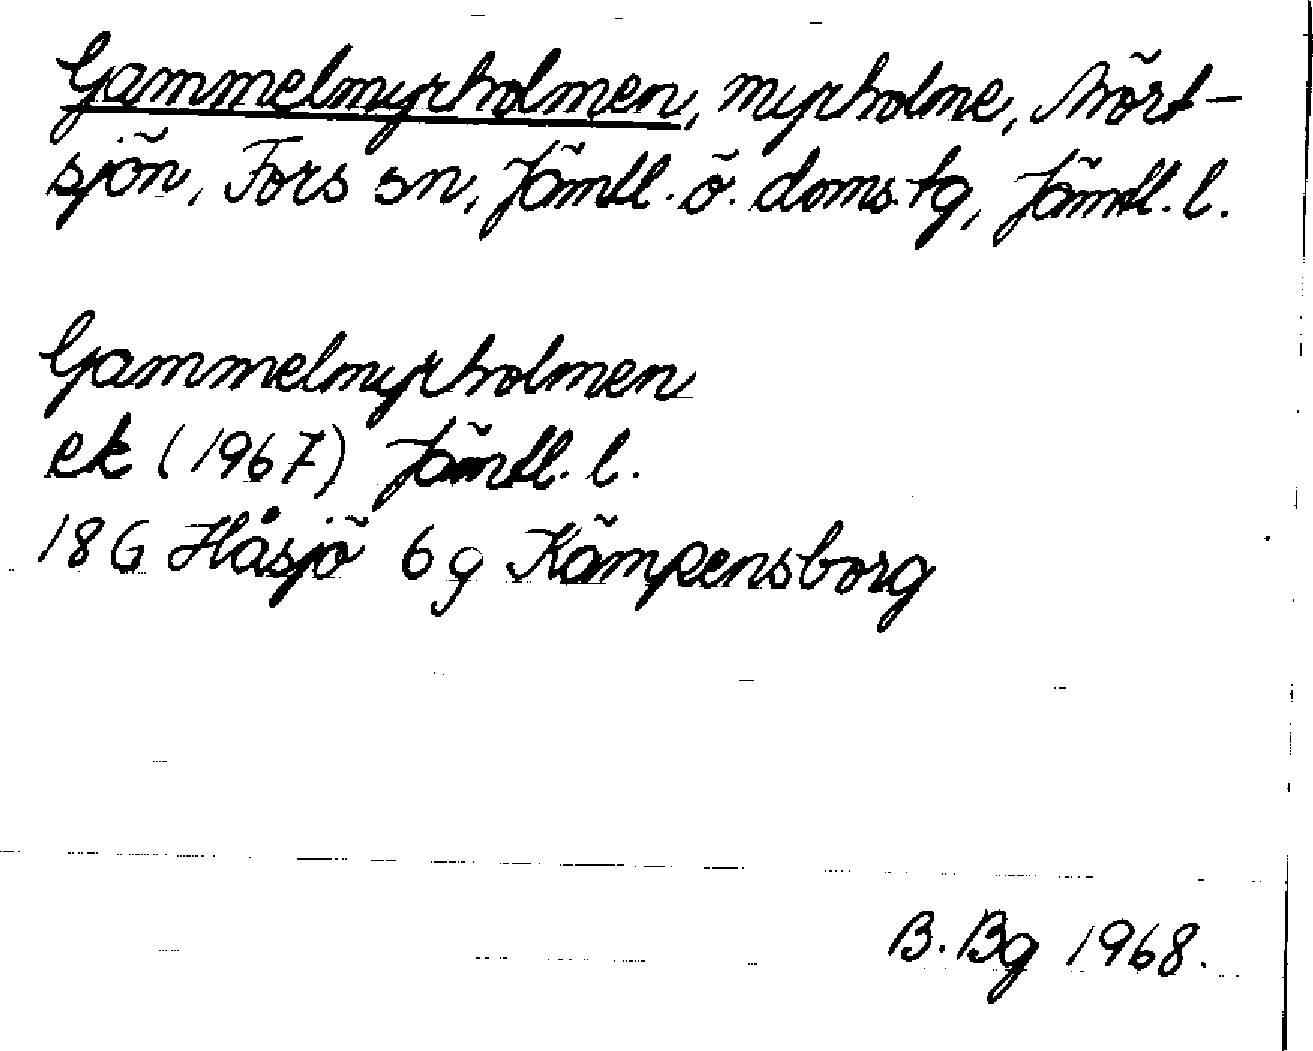 Gammelmyrholmen, myrholme, Mört-
sjön, Fors sn, Jämtl. ö. doms. tg, Jämtl. l.
Gammelmyrholmen
ek (1967) Jämtl. l.
18 G Håsjö 6 g Kämpensborg
B. Bg 1968.